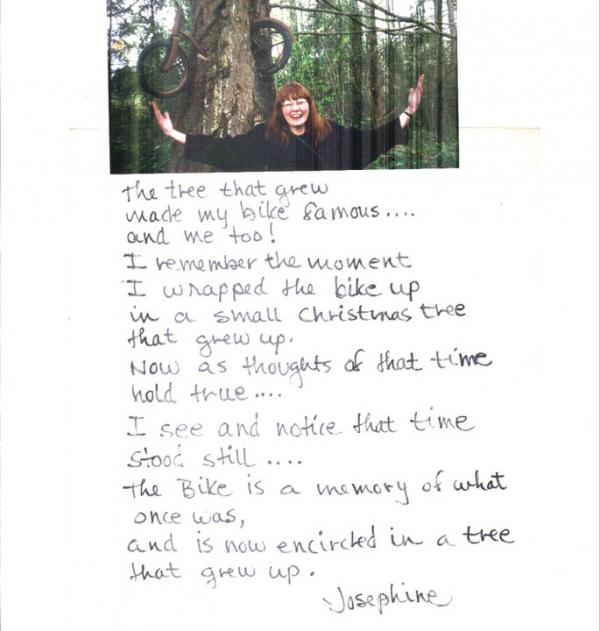 The tree that grew
made my bike famous....
and me too!
I remember the moment
I wrapped the bike up
in a small Christmas tree
that grew up.
Now as thoughts of that time
hold true....
I see and notice that time
stood still....
The Bike is a memory of what
once was,
and is now encircled in a tree
that grew up.
Josephine